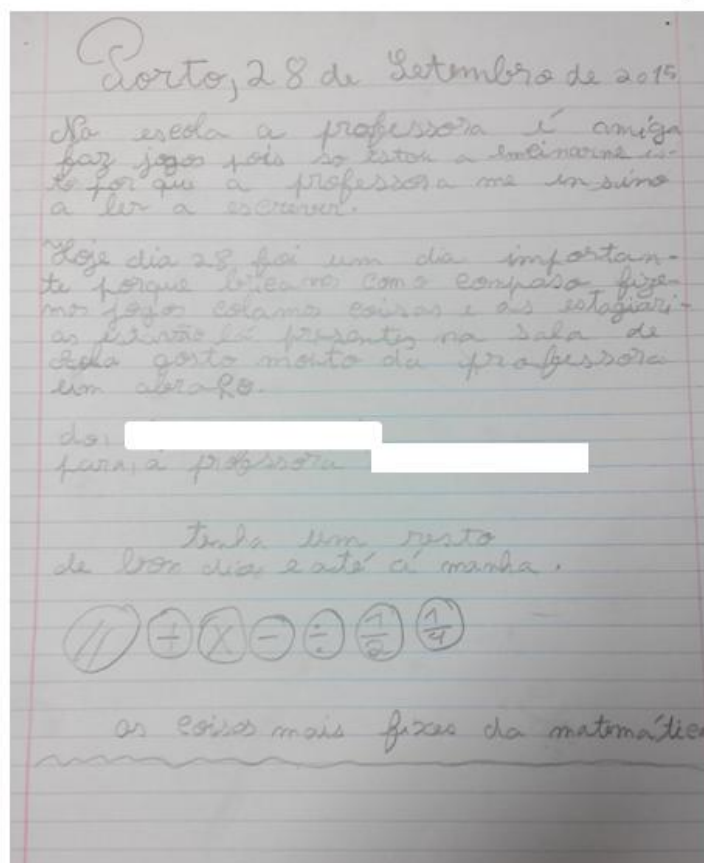 Porto, 28 de Setembro de 2015
Na escola a professora é amiga
faz jogos pois so estou a encinarme is-
to por que a professora me insino
a ler a escrever.
Hoje dia 28 foi um dia importan-
te porque com o compaso fize-
mos jogos colamos coisas e as estagiari-
as lá presentes na sala de
gosto moito da professora
um abraço.
do:
para, a professora
tenha um resto
de bon dia e até á manha.
// + × - ÷ 1/2 1/4
as coisas mais fixes da matemática